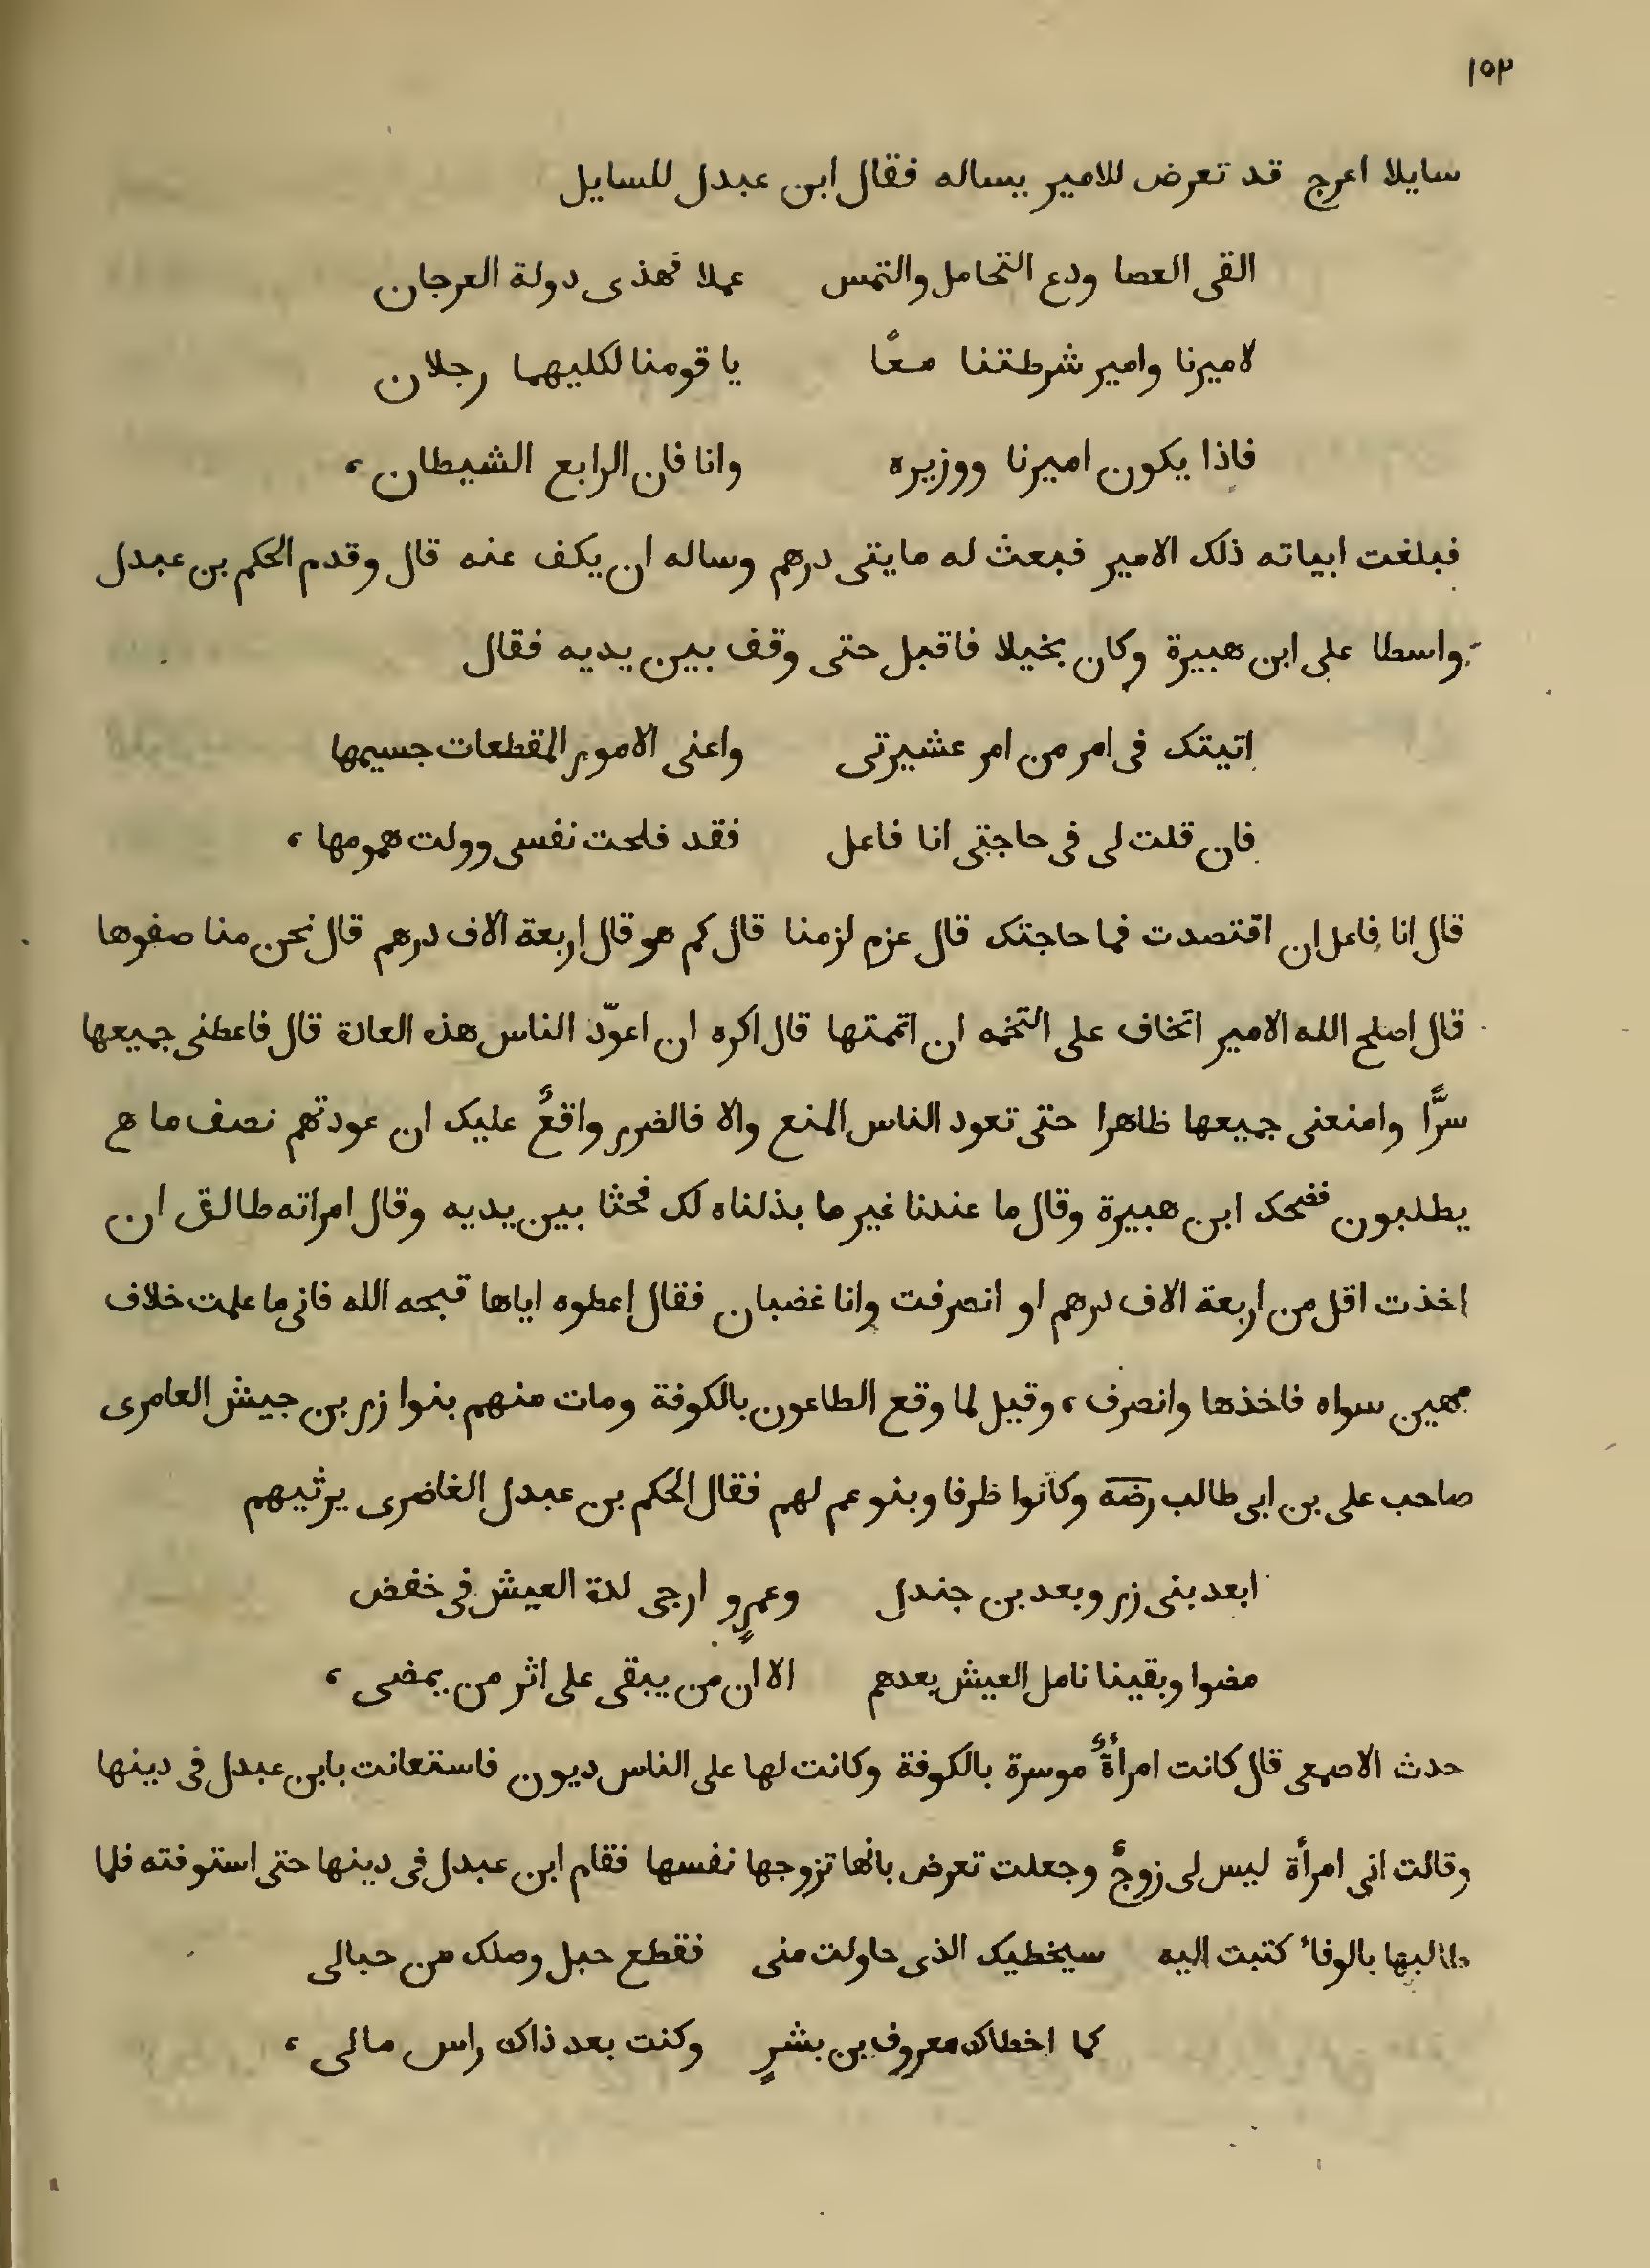 ١٥٢
سايلا اعرج قد تعرض للامير يساله فقال ابن عبدل للسايل
القى العصا ودع التحامل والتمس عملا فهذى دولة العرجان
لاميرنا وامير شرطتنا معًا يا قومنا لكليهما رجلان
فاذا يكون اميرنا ووزيره وانا فان الرابع الشيطان ،
فبلغت ابياته ذلك الامير فبعث له مايتى درهم وساله ان يكف عنه قال وقدم الحكم بن عبدل
واسطا على ابن هبيرة وكان بخيلا فاقبل حتى وقف بين يديه فقال
اتيتك فى امر من امر عشيرتى واعنى الامور المقطعات جسيمها
فان قلت لى فى حاجتى انا فاعل فقد فلحت نفسى وولت همومها ،
قال انا فاعل ان اقتصدت فما حاجتك قال عزم لزمنا قال كم هو قال اربعة الاف درهم قال نحن منا صفوها
قال اصلح الله الامير اتخاف على التخمه ان اتممتها قال اكره ان اعوّد الناس هذه العادة قال فاعطنى جميعها
سرًّا وامنعنى جميعها ظاهرا حتى تعود الناس المنع والا فالضرر واقعٌ عليك ان عودتهم نصف ما هم
يطلبون فضحك ابن هبيرة وقال ما عندنا غير ما بذلناه لك فجثا بين يديه وقال امراته طالق ان
اخذت اقل من اربعة الاف درهم او انصرفت وانا غضبان فقال اعطوه اياها قبحه الله فانى ما علمت خلاف
مهين سواه فاخذها وانصرف ، وقيل لما وقع الطاعون بالكوفة ومات منهم بنوا زر بن جيش العامرى
صاحب على بن ابى طالب رضه وكانوا ظرفا وبنو عم لهم فقال الحكم بن عبدل الغاضرى يرثيهم
ابعد بنى زر وبعد بن جندل وعمرٍو ارجى لدة العيش فى خفض
مضوا وبقينا نامل العيش بعدهم الا ان من يبقى على اثر من يمضى ،
حدث الاصمعى قال كانت امرأةٌ موسرة بالكوفة وكانت لها على الناس ديون فاستعانت بابن عبدل فى دينها
وقالت انى امرأة ليس لى زوجٌ وجعلت تعرض بانها تزوجها نفسها فقام ابن عبدل فى دينها حتى استوفته فلما
طالبها بالوفاء كتبت اليه سيخطيك الذى حاولت منى فقطع حبل وصلك من حبالى
كما اخطاك معروف بن بشرٍ وكنت بعد ذاك راس مالى ،